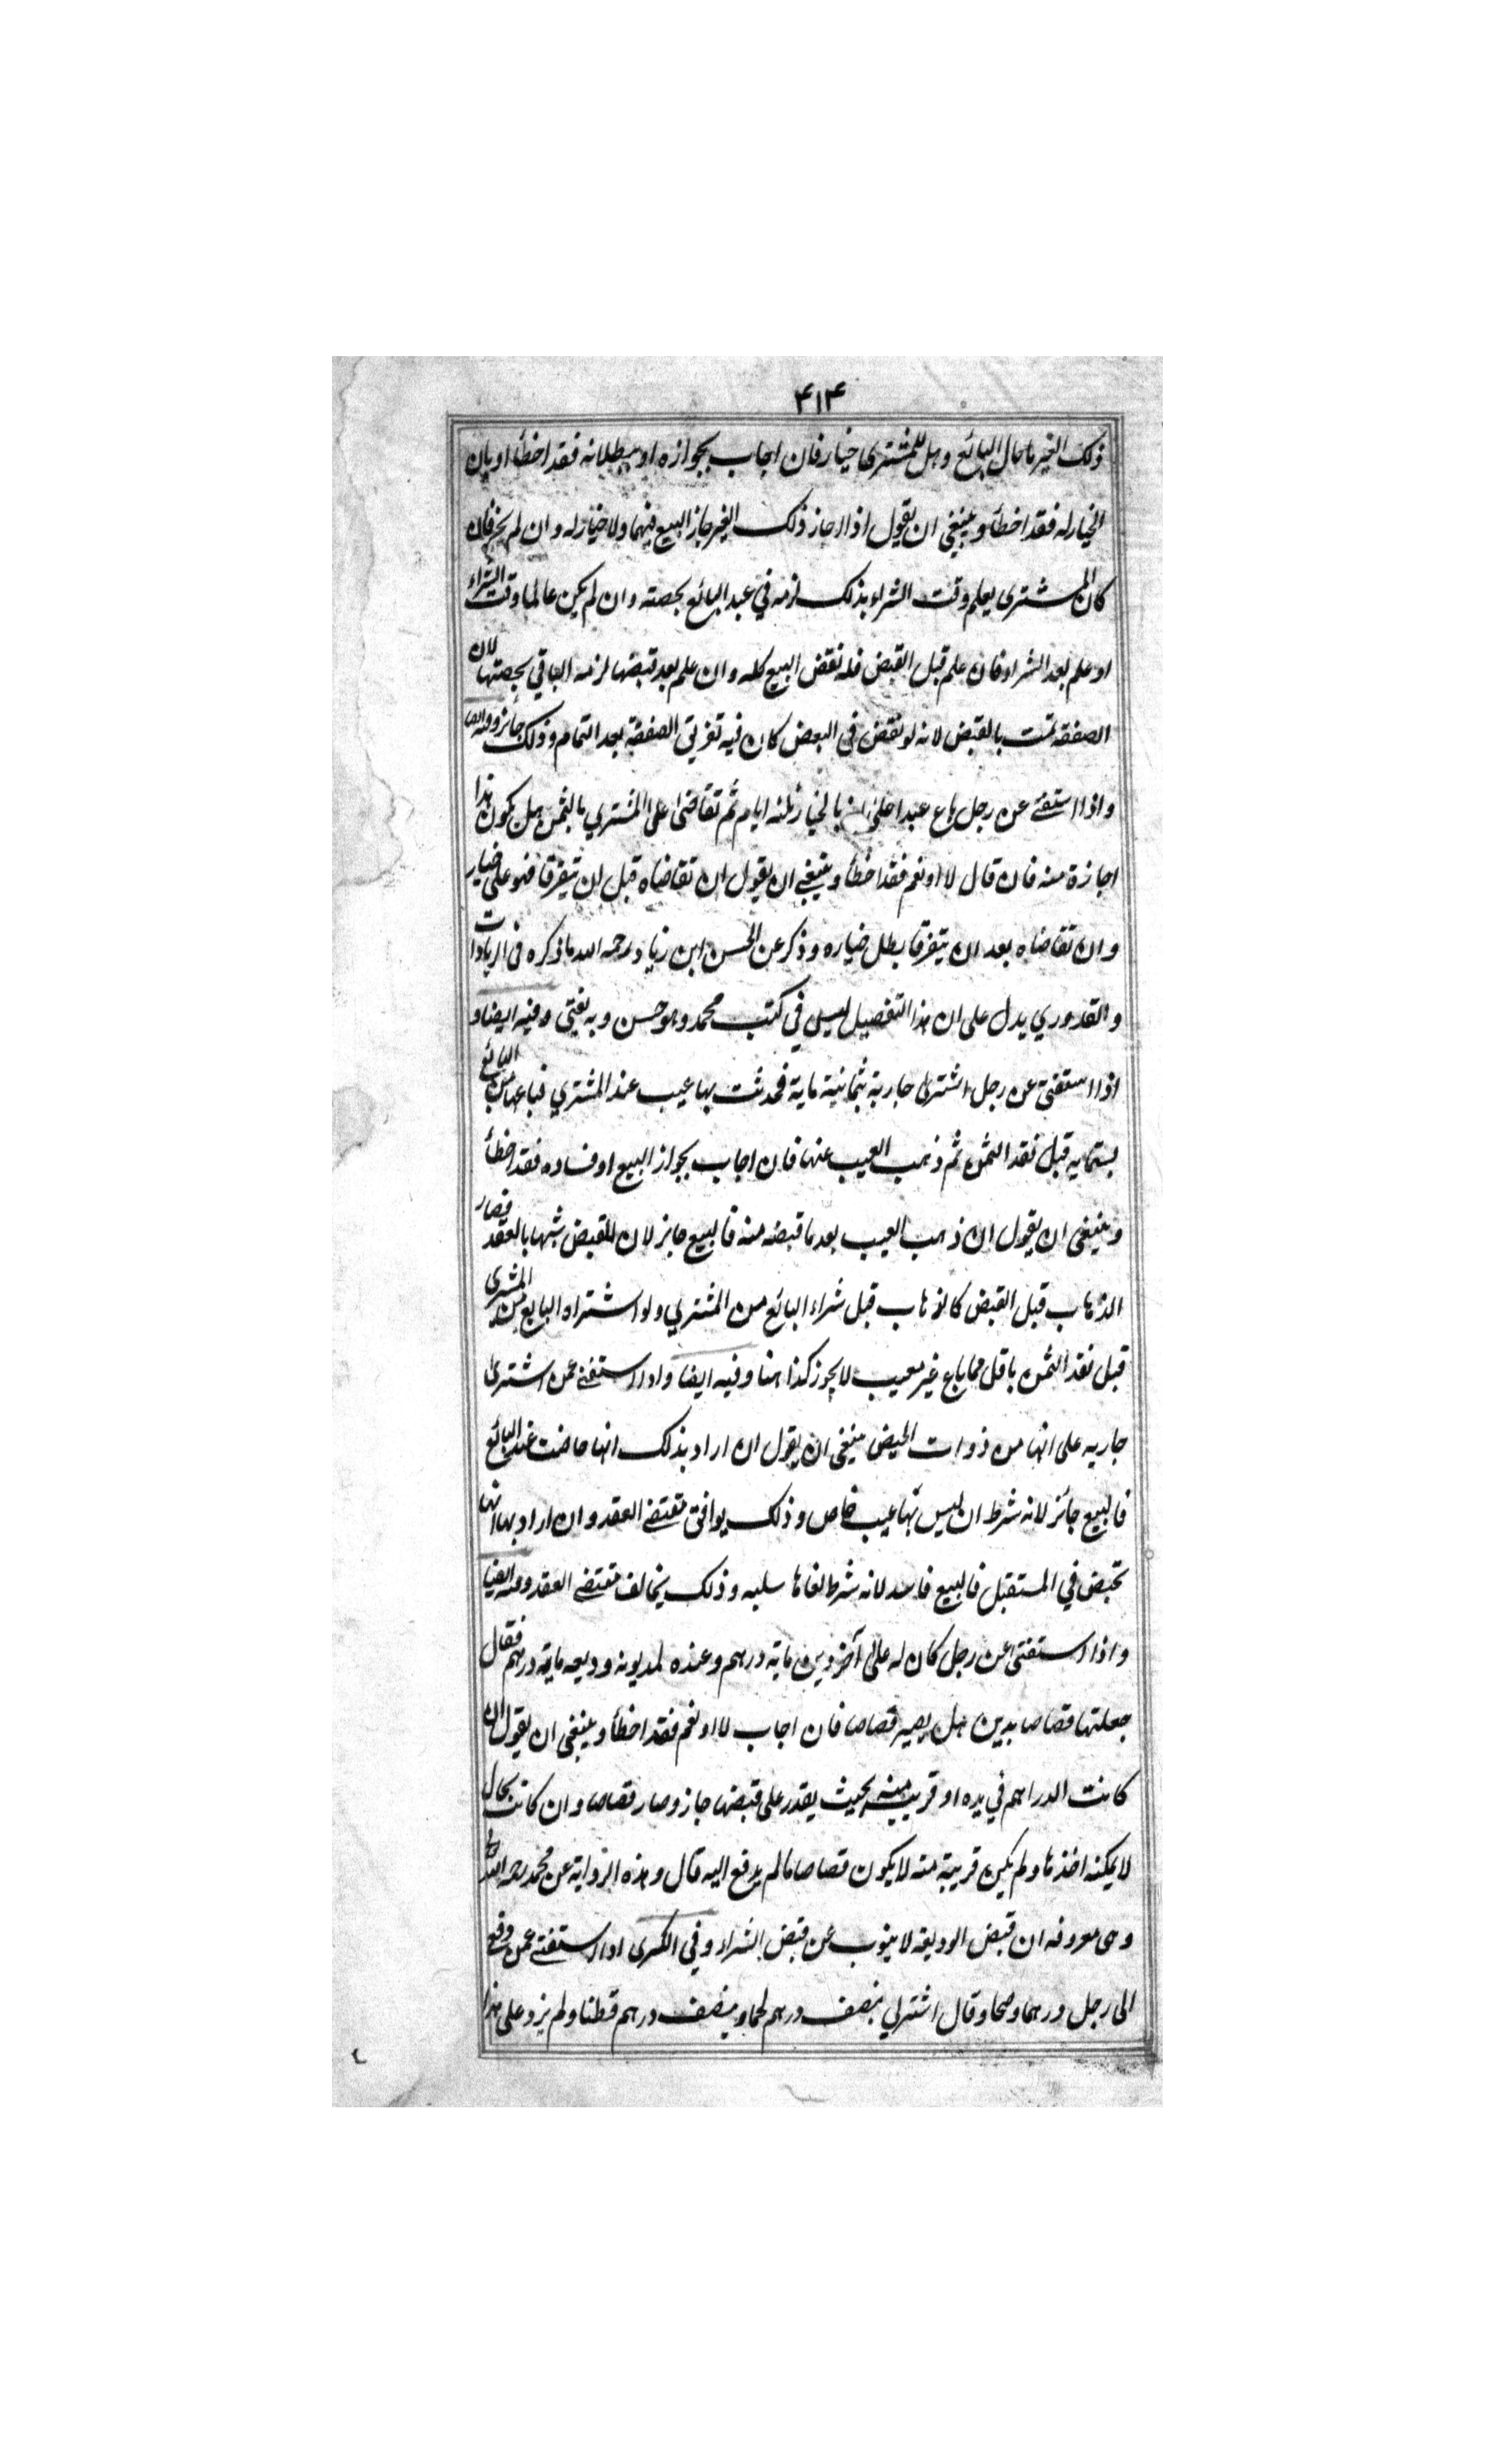 ۴۱۴
ذلك الغير ما حال البائع وهل للمشترى خيار فان اجاب بجوازه او ببطلانه فقد اخطأ او بان
الخيار له فقد اخطأ وينبغى ان يقول اذا اجاز ذلك الغير جاز البيع فيهما ولا خيار له وان لم يجز فان
كان المشترى يعلم وقت الشراء بذلك لزمه في عبد البائع بحصته وان لم يكن عالما وقت الشراء
او علم بعد الشراء فان علم قبل القبض فله نقض البيع كله وان علم بعد قبضها لزمه الباقي بحصتها لان
الصفقه تمت بالقبض لانه لو نقض فى البعض كان فيه تفريق الصفقة بعد التمام وذلك جائز
واذا استفتے عن رجل باع عبدا على انه بالخيار ثلثه ايام ثم تقاضى على المشتري بالثمن هل يكون هذا
اجازة منه فان قال لا او نعم فقد اخطأ وينبغے ان يقول ان تقاضاه قبل ان يتفرقا فهو على خيار
وان تقاضاه بعد ان يتفرقا بطل خياره وذكر عن الحسن ابن زياد رحمه الله ما ذكره فى الزيادات
والقدوري يدل على ان هذا التفصيل ليس في كتب محمد وهو حسن وبه يفتى وفيه ايضا و
اذا استفتى عن رجل اشترى جارية بثمانية ماية فحدثت بها عيب عند المشتري فباعها من البائع
بستمايه قبل نقد الثمن ثم ذهب العيب عنها فان اجاب بجواز البيع او فساده فقد اخطأ
وينبغى ان يقول ان ذهب العيب بعد ما قبضه منه فالبيع جايز لان للقبض شبها بالعقد فصار
الذهاب قبل القبض كالذهاب قبل شراء البائع من المشتري ولو اشتراه البايع من المشترى
قبل نقد الثمن باقل مما باع غير معيب لا يجوز كذا هنا وفيه ايضا واذا استفتے عمن اشترى
جاريه على انها من ذوات الحيض ينبغى ان يقول ان اراد بذلك انها حاضت عند البائع
فالبيع جائز لانه شرط ان ليس بها عيب خاص وذلك يوافق مقتضے العقد وان اراد بها انها
تحيض في المستقبل فالبيع فاسد لانه شرط بقاها سليه وذلك يخالف مقتضے العقد وفيه ايضا
واذا استفتى عن رجل كان له على آخر دين ماية درهم وعنده لمديونه وديعه ماية درهم فقال
جعلتها قصاصا بدين هل يصير قصاصا فان اجاب لا او نعم فقد اخطأ وينبغى ان يقول ان
كانت الدراهم في يده او قريب منه بحيث يقدر على قبضها جاز وصار قصاصا وان كانت بحال
لا يمكنه اخذها ولم يكن قريبة منه لا يكون قصاصا ما لم يدفع اليه قال وهذه الرواية عن محمد رحمه الله
وهى معروفه ان قبض الوديعه لا ينوب عن قبض الشراء وفي الكبرى اذا استفتے عمن دفع
الى رجل درهما وضحا وقال اشترلي بنصف درهم لحما وبنصف درهم قطنا ولم يزد على هذا